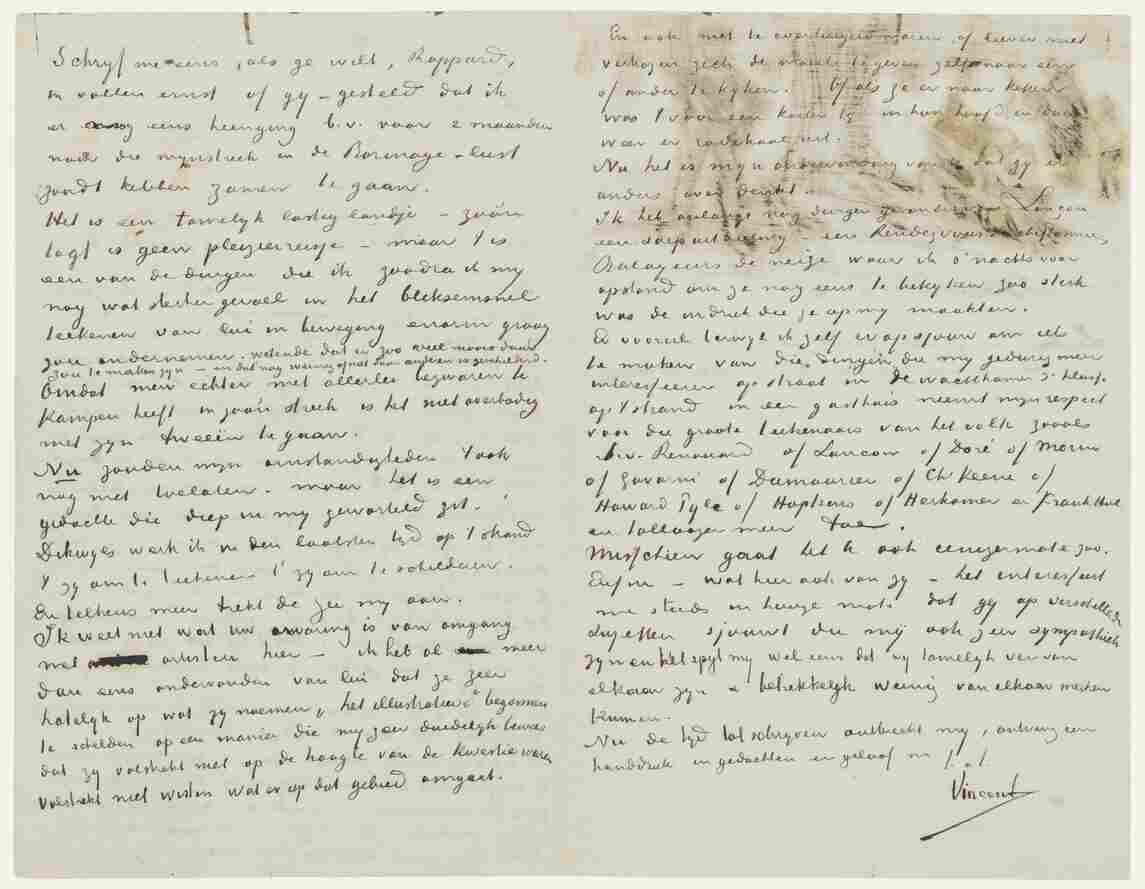 Schryf me eens, als ge wilt, Rappard,
in vollen ernst of gy – gesteld dat ik
er nog eens heenging b.v. voor 2 maanden
naar die mynstreek in de Borinage – lust
zoudt hebben zamen te gaan.
Het is een tamelyk lastig landje – zoo'n
togt is geen pleizierreisje – maar 't is
een van de dingen die ik zoodra ik my
nog wat sterker gevoel in het bliksemsnel
teekenen van lui in beweging enorm graag
zou ondernemen. wetende dat er zoo veel moois daar
zou te maken zyn – en dat nog weinig of niet door anderen is geschilderd.
Omdat men echter met allerlei bezwaren te
kampen heeft in zoo'n streek is het niet overbodig
met zyn tweeën te gaan.
Nu zouden myn omstandigheden 't ook
nog niet toelaten. maar het is een
gedachte die diep in my geworteld zit.
Dikwijls werk ik in den laatsten tyd op 't strand
't zy om te teekenen 't zy om te schilderen.
En telkens meer trekt de zee my aan.
Ik weet niet wat uw ervaring is van omgang
met artisten hier – ik heb al meer
dan eens ondervonden van lui dat ze zeer
hatelyk op wat zy noemen „het illustratieve" begonnen
te schelden op een manier die my zeer duidelyk bewees
dat zy volstrekt niet op de hoogte van de kwestie waren
volstrekt niet wisten wat er op dat gebied omgaat.
En ook niet te overtuigen waren of liever niet
verkozen zich de moeite te geven zelf naar een
of ander te kyken. Of als ze er naar keken
was 't voor een korten tyd in hun hoofd en daar
weer er radikaal uit.
Nu het is myn ondervinding van U dat gy er
anders over denkt.
Ik heb onlangs nog dingen gevonden Lançon
een soepuitdeeling – een Rendezvous chiffonniers,
Balayeurs de neige waar ik s'nachts voor
opstond om ze nog eens te bekyken zoo sterk
was de indruk die ze op my maakten.
En vooral terwyl ik zelf er op sjouw om iets
te maken van die dingen die my gedurig meer
interesseeren op straat in de wachtkamer 3e klasse
op 't strand in een gasthuis neemt myn respect
voor die groote teekenaars van het volk zooals
b.v. Renouard of Lançon of Doré of Morin
of Gavarni of Dumaurier of Ch Keene of
Howard Pyle of Hopkins of Herkomer en Frank Holl
en tallooze meer toe.
Misschien gaat het U ook eenigermate zoo.
Enfin – wat hier ook van zy – het interesseert
me steeds in hooge mate dat gy op verschillende
dingen sjouwt die mij ook zeer sympathiek
zyn en het spyt my wel eens dat wy tamelyk ver van
elkaar zyn & betrekkelyk weinig van elkaar merken
kunnen.
Nu de tyd tot schryven ontbreekt my, ontvang een
handdruk in gedachten en geloof me t. à t.
Vincent